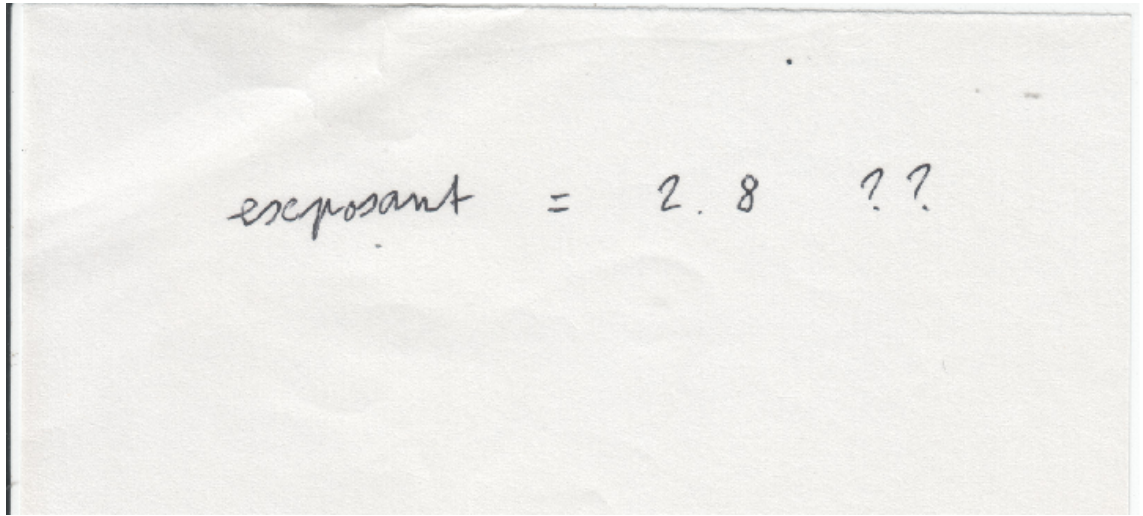 exposant = 2.8 ??